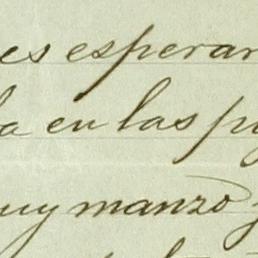 es esperar
la en las p
uy manzo y